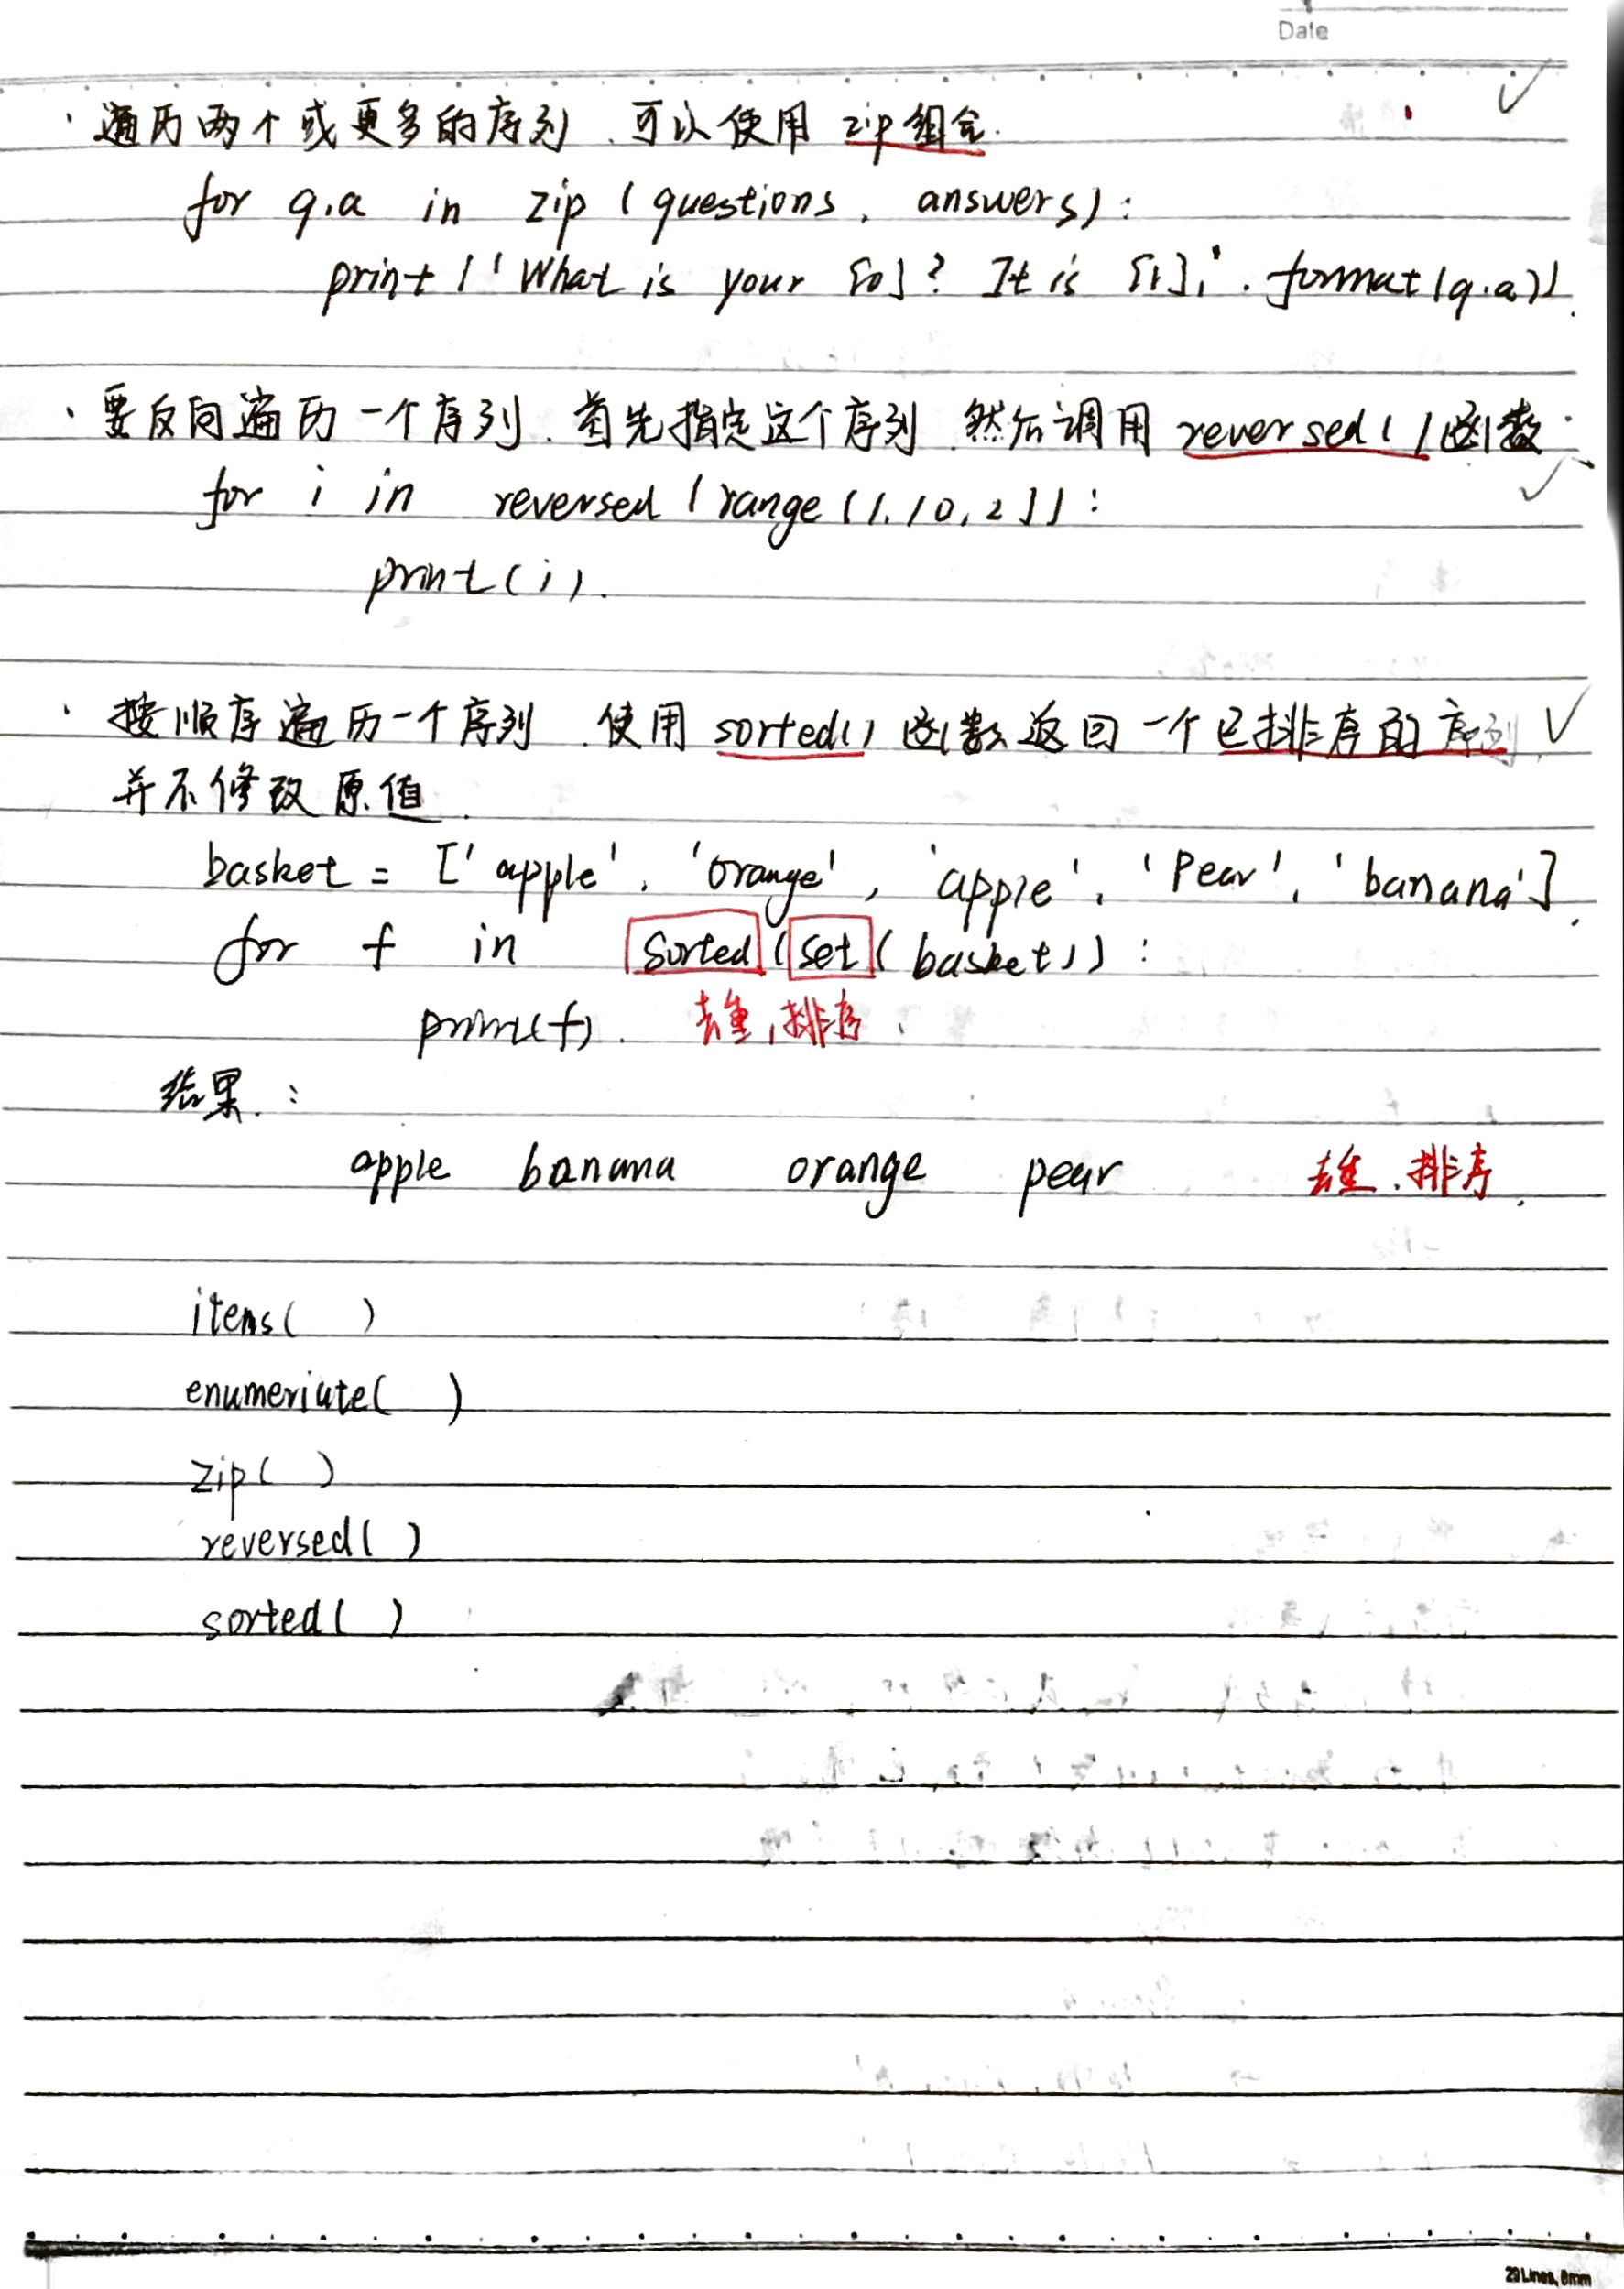 Date
· 遍历两个或更多的序列、可以使用 zip组合.
for q,a in zip (questions, answers):
print ('What is your {0}? It is {1}.'.format(q,a))
· 要反向遍历一个序列、首先指定这个序列、然后调用 reversed()函数.
for i in reversed (range (1,10,2)):
print(i).
· 按顺序遍历一个序列、使用 sorted() 函数返回一个已排序的序列 ✓
并不修改原值.
basket = ['apple', 'orange', 'apple', 'Pear', 'banana'].
for f in Sorted (set (basket)):
print(f). 去重,排序、
结果:
apple banana orange pear 去重、排序.
items( )
enumeriate( )
zip( )
reversed( )
sorted( )
29 Lines, 8mm